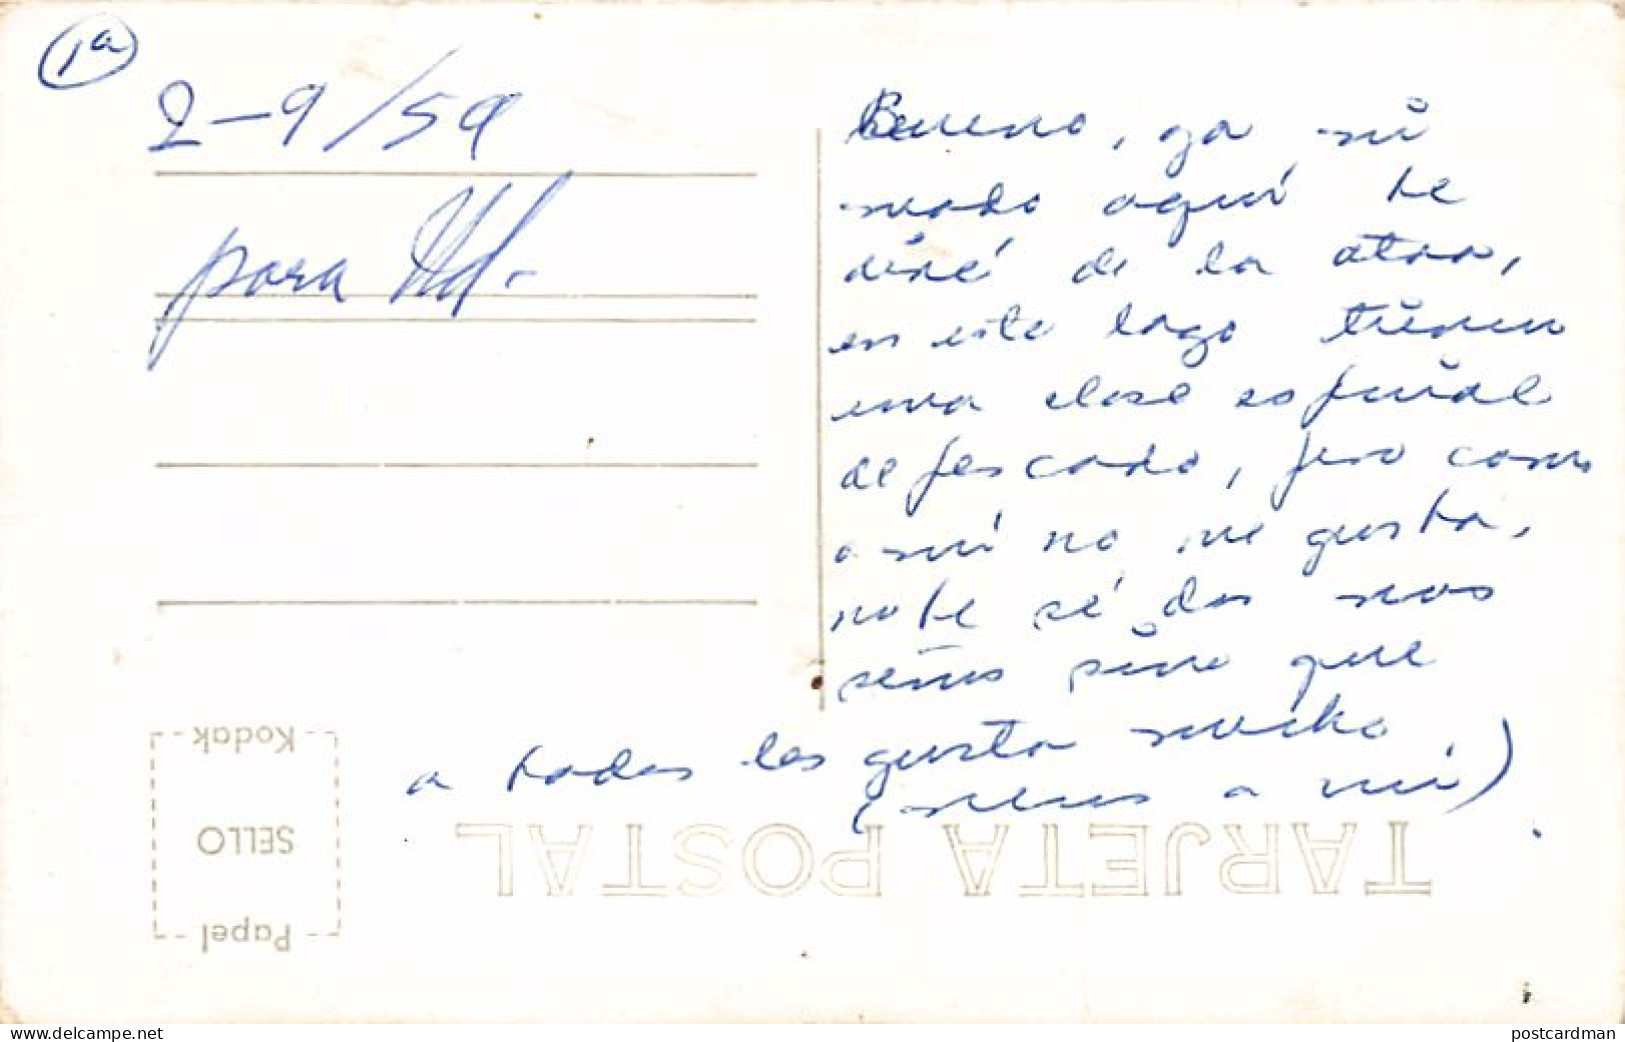 1ª
2-9/59
para Ud.
Bueno, ya ni
modo aquí te
diré de la otra,
en este lago tienen
una clase especial
de pescado, pero como
a mí no me gusta,
no te sé dar mas
señas sino que
a todos les gusta mucho,
(menos a mí)
TARJETA POSTAL
Papel
SELLO
Kodak
delcampe.net
postcardman